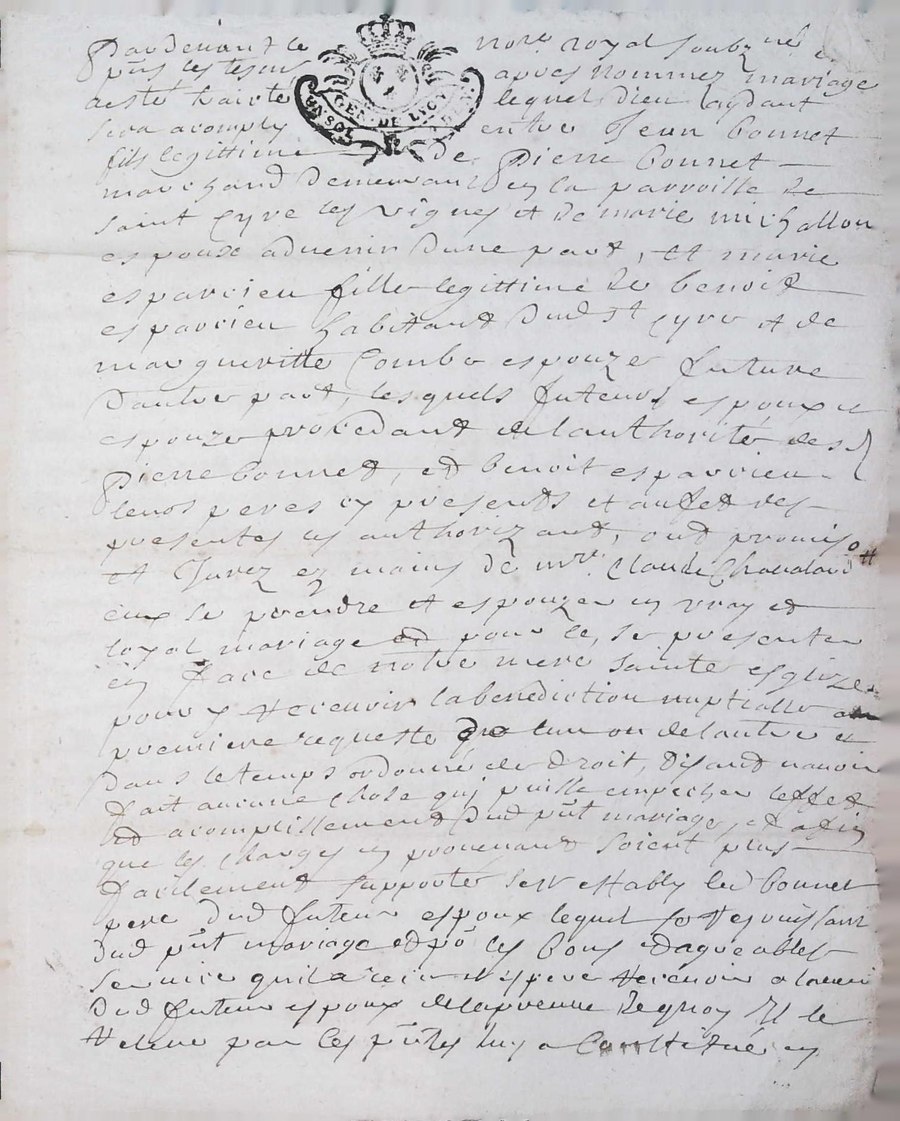 Pardevant le nore royal soubzné
pnts les tesms apres nommez mariage
a esté traitté lequel dieu aydant
sera acomply entre Jean bonnet
GEN. DE LYON
UN SOL
fils legittime de Pierre bonnet
marchand demeurant en la parroisse de
saint Cyre les vignes et de marie michallon
espoux aduenir dune part, et marie
esparcieu fille legittime de benoit
esparcieu habittant dud st Cyre et de
margueritte Combe espouze future
dautre part, lesquels futeurs espoux et
espouze procedant de lauthorité des
Pierre bonnet, et benoit esparcieu
leurs peres icy presents et au fet des
presentes les authorizant, ont promis
et Jurez ez mains de mre Claude
eux se prendre et espouzer en vray et
loyal mariage et pour ce, se presenter
en face de notre mere sainte esglize
pour y recevoir la benediction nuptialle a
premiere requeste que lun ou de lautre et
dans le temps ordonné de droit, disant navoir
fait aucune chose quj puisse empecher leffet
et acomplissement dud pnt mariage, et afin
que les charges en provenant soient plus
facilement supporté sest estably led bonnet
pere dud futeur espoux lequel se resjouissant
dud pnt mariage et po les bons et agreables
service quil a receu et espere recevoir a lavenir
dud futeur espoux de la preuve dequoy Il le
releve par ces pntes luy a Constitué en